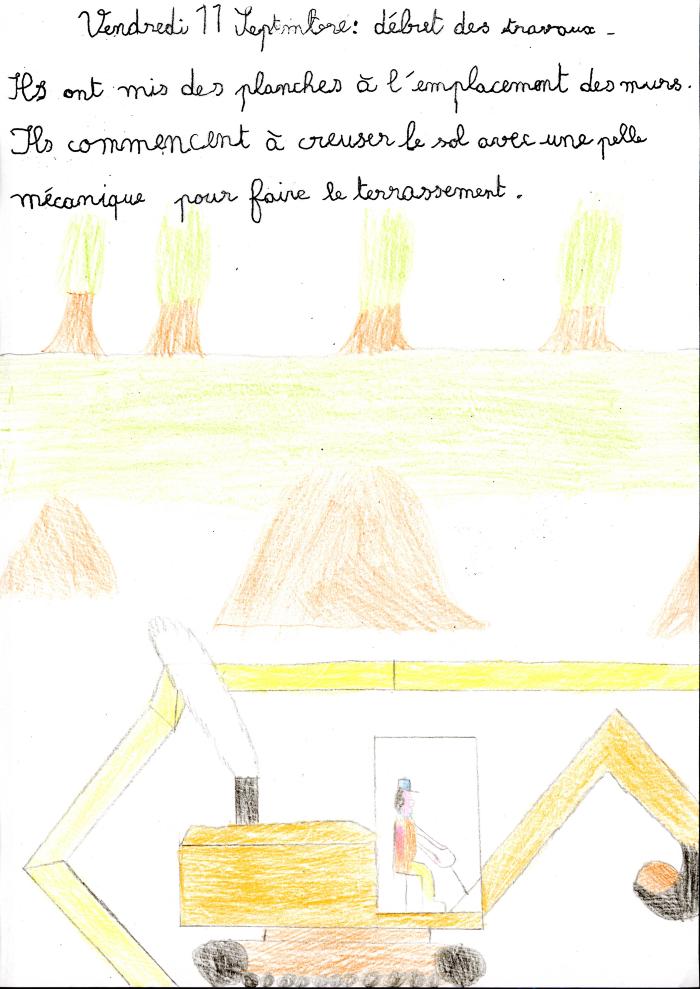 Vendredi 11 Septembre: début des travaux -
Ils ont mis des planches à l'emplacement des murs.
Ils commencent à creuser le sol avec une pelle
mécanique pour faire le terrassement.